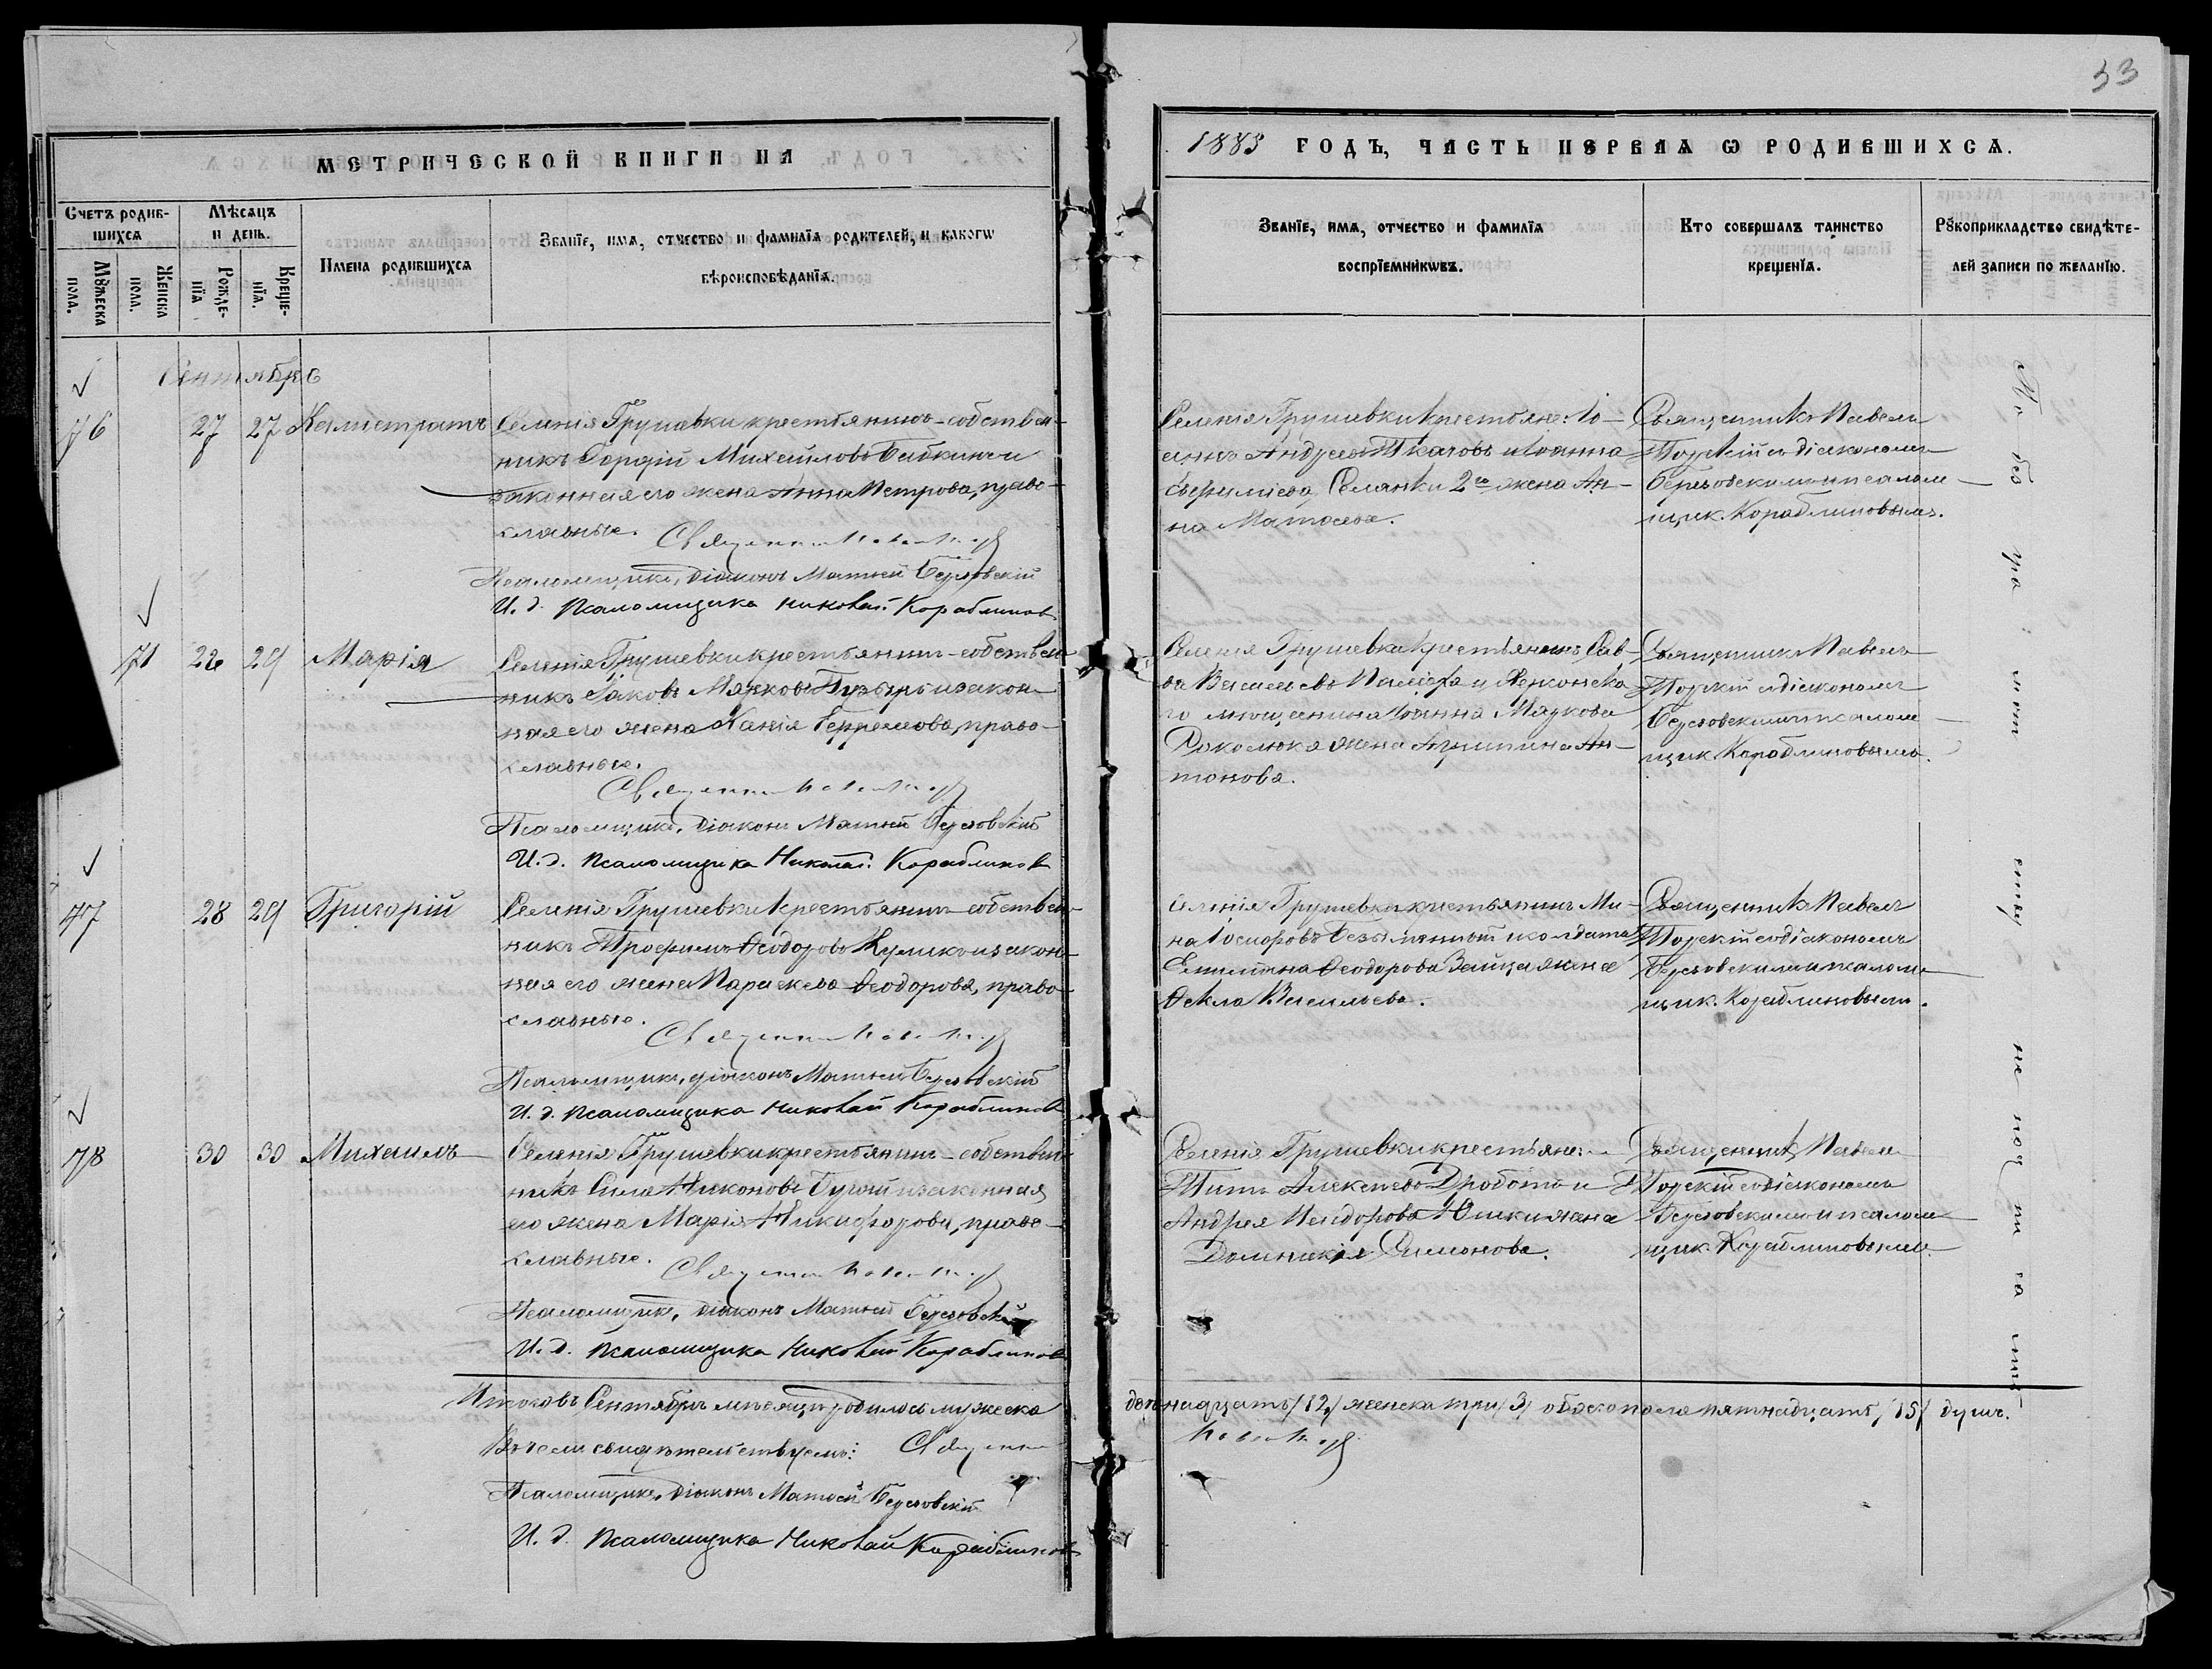 33
МЕТРИЧЕСКОЙ КНИГИ НА
1883 ГОДЪ, ЧАСТЬ ПЕРВАЯ Ѡ РОДИВШИХСЯ.
Счетъ родив-
шихся
Мѣсяцъ
и день.
Мꙋжеска
пола.
Женска
пола.
Рожде-
нїя
Креще-
нїя.
Имена родившихся
Званїе, имя, отчество и фамилїя родителей, и какогѡ
вѣроисповѣданїя.
Званїе, имя, отчество и фамилїя
воспрїемникѡвъ.
Кто совершалъ таинство
крещенїя.
Рꙋкоприкладство свидѣте-
лей записи по желанїю.
Сентябрь
76 27 27 Калистратъ
Селенія Грушевки крестьянинъ-собствен-
никъ Сергій Михайловъ Бабкинъ и
законная его жена Анна Петрова, право-
славные.
Псаломщикъ, діаконъ Матѳей Березовскій
И. д. Псаломщика Николай Кораблиновъ
Селенія Грушевки крестьяне: Іо-
аннъ Андреевъ Ткачовъ и Іоанна
Евфиміева Селянки 2го жена Ан-
на Матѳеева.
Священникъ Павелъ
Торскій съ діакономъ
Березовскимъ и псалом-
щик. Кораблиновымъ.
71 26 29 Марія
Селенія Грушевки крестьянинъ-собствен-
никъ Іаковъ Марковъ Пузырь и закон-
ная его жена Ксенія Ефремова, право-
славные.
Псаломщикъ, діаконъ Матѳей Березовскій
И. д. Псаломщика Николай Кораблиновъ
Селенія Грушевки крестьянинъ Сав-
ва Васильевъ и
го мещанина Іоанна Маркова
жена Агрипина Ан-
тонова.
Священникъ Павелъ
Торскій съ діакономъ
Березовскимъ и псалом-
щик. Кораблиновымъ.
77 28 29 Григорій
Селенія Грушевки крестьянинъ-собствен-
никъ Трофимъ Ѳеодоровъ и закон-
ная его жена Параскева Ѳеодорова, право-
славные.
Псаломщикъ, діаконъ Матѳей Березовскій
И. д. Псаломщика Николай Кораблиновъ
Селенія Грушевки крестьянинъ Ми-
на Іосифовъ Безъименный и солдата
Емельяна Ѳеодорова Зайца жена
Ѳекла Васильева.
Священникъ Павелъ
Торскій съ діакономъ
Березовскимъ и псалом-
щик. Кораблиновымъ.
78 30 30 Михаилъ
Селенія Грушевки крестьянинъ-собствен-
никъ Сила Никоновъ Бугай и законная
его жена Марія Никифорова, право-
славные.
Псаломщикъ, діаконъ Матѳей Березовскій
И. д. Псаломщика Николай Кораблиновъ
Селенія Грушевки крестьяне:
Титъ Алексеевъ Дробота и
Андрея Исидорова Юшки жена
Домникія Симонова.
Священникъ Павелъ
Торскій съ діакономъ
Березовскимъ и псалом-
щик. Кораблиновымъ.
Итого въ Сентябрѣ мѣсяцѣ родилось мужеска
двѣнадцать /12/ женска три /3/ обоего пола пятнадцать /15/ душъ.
Въ чемъ свидѣтельствуемъ:
Псаломщикъ, Діаконъ Матѳей Березовскій
И. д. Псаломщика Николай Кораблиновъ